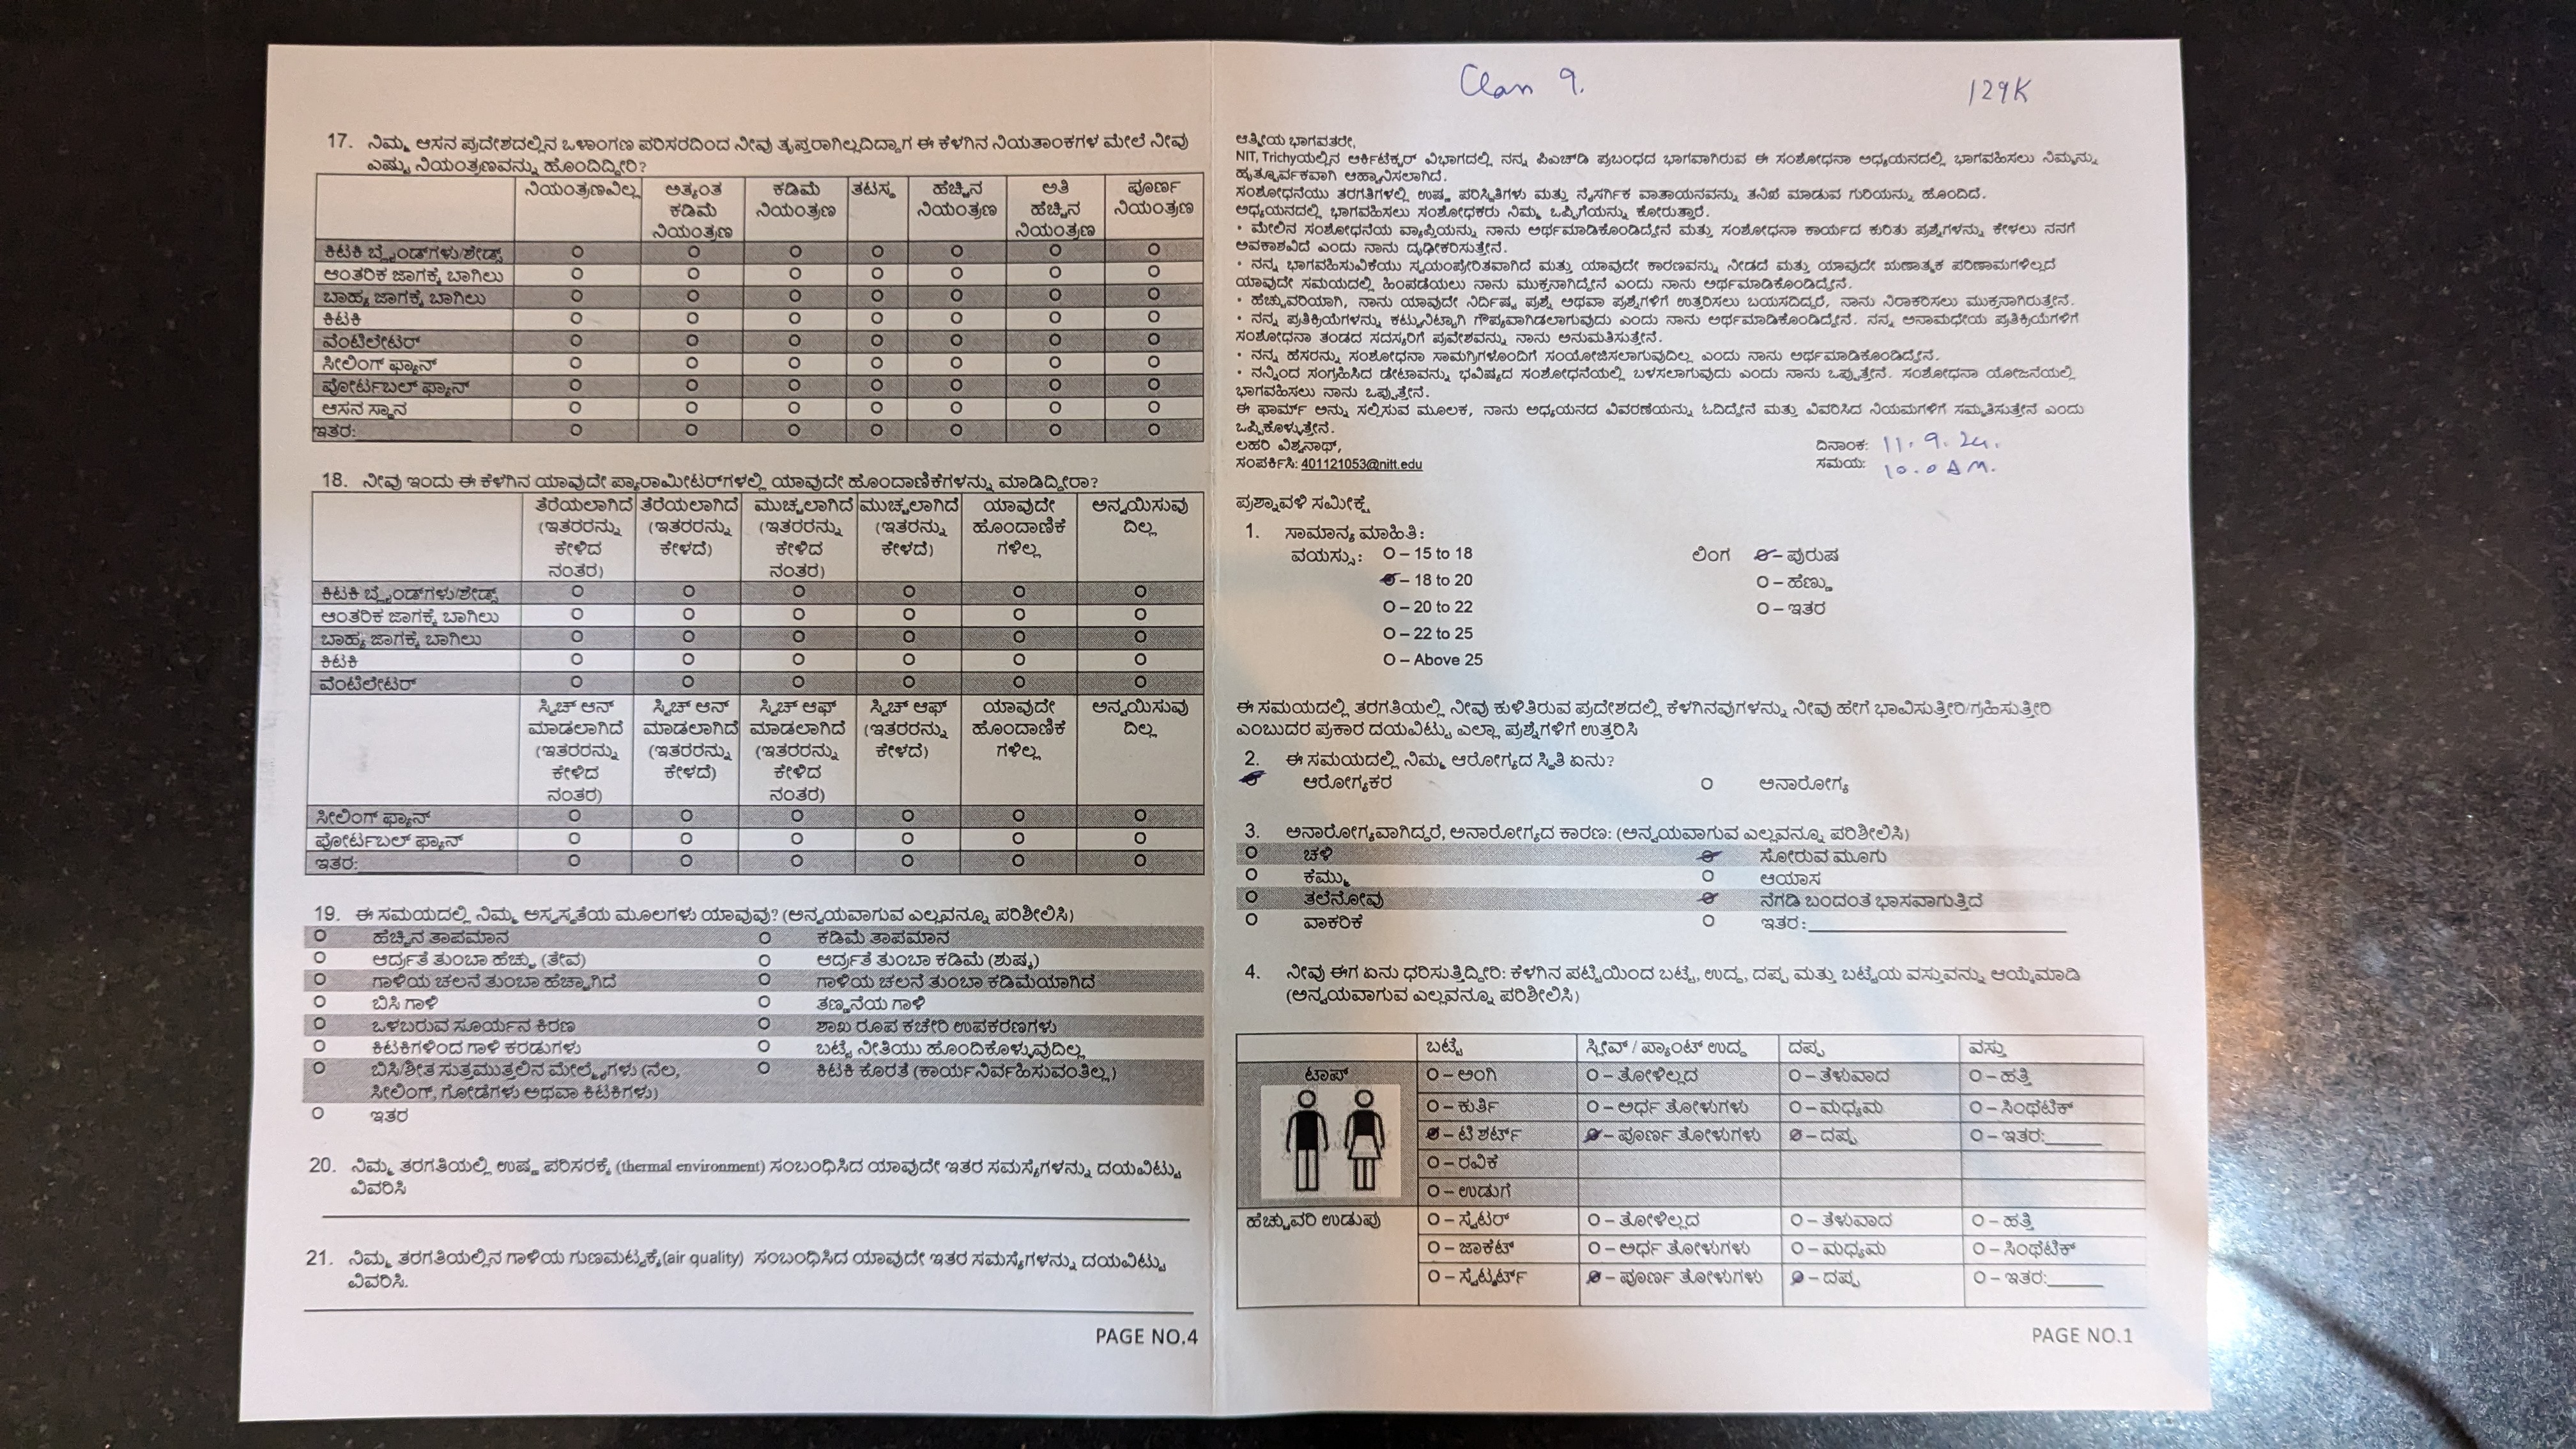 17. ನಿಮ್ಮ ಆಸನ ಪ್ರದೇಶದಲ್ಲಿನ ಒಳಾಂಗಣ ಪರಿಸರದಿಂದ ನೀವು ತೃಪ್ತರಾಗಿಲ್ಲದಿದ್ದಾಗ ಈ ಕೆಳಗಿನ ನಿಯತಾಂಕಗಳ ಮೇಲೆ ನೀವು
ಎಷ್ಟು ನಿಯಂತ್ರಣವನ್ನು ಹೊಂದಿದ್ದೀರಿ?
ನಿಯಂತ್ರಣವಿಲ್ಲ ಅತ್ಯಂತ ಕಡಿಮೆ ನಿಯಂತ್ರಣ ಕಡಿಮೆ ನಿಯಂತ್ರಣ ತಟಸ್ಥ ಹೆಚ್ಚಿನ ನಿಯಂತ್ರಣ ಅತಿ ಹೆಚ್ಚಿನ ನಿಯಂತ್ರಣ ಪೂರ್ಣ ನಿಯಂತ್ರಣ
ಕಿಟಕಿ ಬ್ಲೈಂಡ್‌ಗಳು/ಶೇಡ್ಸ್ O O O O O O O
ಆಂತರಿಕ ಜಾಗಕ್ಕೆ ಬಾಗಿಲು O O O O O O O
ಬಾಹ್ಯ ಜಾಗಕ್ಕೆ ಬಾಗಿಲು O O O O O O O
ಕಿಟಕಿ O O O O O O O
ವೆಂಟಿಲೇಟರ್ O O O O O O O
ಸೀಲಿಂಗ್ ಫ್ಯಾನ್ O O O O O O O
ಪೋರ್ಟಬಲ್ ಫ್ಯಾನ್ O O O O O O O
ಆಸನ ಸ್ಥಾನ O O O O O O O
ಇತರ:__________ O O O O O O O
18. ನೀವು ಇಂದು ಈ ಕೆಳಗಿನ ಯಾವುದೇ ಪ್ಯಾರಾಮೀಟರ್‌ಗಳಲ್ಲಿ ಯಾವುದೇ ಹೊಂದಾಣಿಕೆಗಳನ್ನು ಮಾಡಿದ್ದೀರಾ?
ತೆರೆಯಲಾಗಿದೆ (ಇತರರನ್ನು ಕೇಳಿದ ನಂತರ) ತೆರೆಯಲಾಗಿದೆ (ಇತರರನ್ನು ಕೇಳದೆ) ಮುಚ್ಚಲಾಗಿದೆ (ಇತರರನ್ನು ಕೇಳಿದ ನಂತರ) ಮುಚ್ಚಲಾಗಿದೆ (ಇತರರನ್ನು ಕೇಳದೆ) ಯಾವುದೇ ಹೊಂದಾಣಿಕೆ ಗಳಿಲ್ಲ ಅನ್ವಯಿಸುವು ದಿಲ್ಲ
ಕಿಟಕಿ ಬ್ಲೈಂಡ್‌ಗಳು/ಶೇಡ್ಸ್ O O O O O O
ಆಂತರಿಕ ಜಾಗಕ್ಕೆ ಬಾಗಿಲು O O O O O O
ಬಾಹ್ಯ ಜಾಗಕ್ಕೆ ಬಾಗಿಲು O O O O O O
ಕಿಟಕಿ O O O O O O
ವೆಂಟಿಲೇಟರ್ O O O O O O
ಸ್ವಿಚ್ ಆನ್ ಮಾಡಲಾಗಿದೆ (ಇತರರನ್ನು ಕೇಳಿದ ನಂತರ) ಸ್ವಿಚ್ ಆನ್ ಮಾಡಲಾಗಿದೆ (ಇತರರನ್ನು ಕೇಳದೆ) ಸ್ವಿಚ್ ಆಫ್ ಮಾಡಲಾಗಿದೆ (ಇತರರನ್ನು ಕೇಳಿದ ನಂತರ) ಸ್ವಿಚ್ ಆಫ್ (ಇತರರನ್ನು ಕೇಳದೆ) ಯಾವುದೇ ಹೊಂದಾಣಿಕೆ ಗಳಿಲ್ಲ ಅನ್ವಯಿಸುವು ದಿಲ್ಲ
ಸೀಲಿಂಗ್ ಫ್ಯಾನ್ O O O O O O
ಪೋರ್ಟಬಲ್ ಫ್ಯಾನ್ O O O O O O
ಇತರ:__________ O O O O O O
19. ಈ ಸಮಯದಲ್ಲಿ ನಿಮ್ಮ ಅಸ್ವಸ್ಥತೆಯ ಮೂಲಗಳು ಯಾವುವು? (ಅನ್ವಯವಾಗುವ ಎಲ್ಲವನ್ನೂ ಪರಿಶೀಲಿಸಿ)
O ಹೆಚ್ಚಿನ ತಾಪಮಾನ O ಕಡಿಮೆ ತಾಪಮಾನ
O ಆರ್ದ್ರತೆ ತುಂಬಾ ಹೆಚ್ಚು (ತೇವ) O ಆರ್ದ್ರತೆ ತುಂಬಾ ಕಡಿಮೆ (ಶುಷ್ಕ)
O ಗಾಳಿಯ ಚಲನೆ ತುಂಬಾ ಹೆಚ್ಚಾಗಿದೆ O ಗಾಳಿಯ ಚಲನೆ ತುಂಬಾ ಕಡಿಮೆಯಾಗಿದೆ
O ಬಿಸಿ ಗಾಳಿ O ತಣ್ಣನೆಯ ಗಾಳಿ
O ಒಳಬರುವ ಸೂರ್ಯನ ಕಿರಣ O ಶಾಖ ರೂಪ ಕಚೇರಿ ಉಪಕರಣಗಳು
O ಕಿಟಕಿಗಳಿಂದ ಗಾಳಿ ಕರಡುಗಳು O ಬಟ್ಟೆ ನೀತಿಯು ಹೊಂದಿಕೊಳ್ಳುವುದಿಲ್ಲ
O ಬಿಸಿ/ಶೀತ ಸುತ್ತಮುತ್ತಲಿನ ಮೇಲ್ಮೈಗಳು (ನೆಲ, O ಕಿಟಕಿ ಕೊರತೆ (ಕಾರ್ಯನಿರ್ವಹಿಸುವಂತಿಲ್ಲ)
ಸೀಲಿಂಗ್, ಗೋಡೆಗಳು ಅಥವಾ ಕಿಟಕಿಗಳು)
O ಇತರ
20. ನಿಮ್ಮ ತರಗತಿಯಲ್ಲಿ ಉಷ್ಣ ಪರಿಸರಕ್ಕೆ (thermal environment) ಸಂಬಂಧಿಸಿದ ಯಾವುದೇ ಇತರ ಸಮಸ್ಯೆಗಳನ್ನು ದಯವಿಟ್ಟು
ವಿವರಿಸಿ
21. ನಿಮ್ಮ ತರಗತಿಯಲ್ಲಿನ ಗಾಳಿಯ ಗುಣಮಟ್ಟಕ್ಕೆ(air quality) ಸಂಬಂಧಿಸಿದ ಯಾವುದೇ ಇತರ ಸಮಸ್ಯೆಗಳನ್ನು ದಯವಿಟ್ಟು
ವಿವರಿಸಿ.
PAGE NO.4
Class 9.
129K
ಆತ್ಮೀಯ ಭಾಗವತರೇ,
NIT, Trichyಯಲ್ಲಿನ ಆರ್ಕಿಟೆಕ್ಚರ್ ವಿಭಾಗದಲ್ಲಿ ನನ್ನ ಪಿಎಚ್‌ಡಿ ಪ್ರಬಂಧದ ಭಾಗವಾಗಿರುವ ಈ ಸಂಶೋಧನಾ ಅಧ್ಯಯನದಲ್ಲಿ ಭಾಗವಹಿಸಲು ನಿಮ್ಮನ್ನು
ಹೃತ್ಪೂರ್ವಕವಾಗಿ ಆಹ್ವಾನಿಸಲಾಗಿದೆ.
ಸಂಶೋಧನೆಯು ತರಗತಿಗಳಲ್ಲಿ ಉಷ್ಣ ಪರಿಸ್ಥಿತಿಗಳು ಮತ್ತು ನೈಸರ್ಗಿಕ ವಾತಾಯನವನ್ನು ತನಿಖೆ ಮಾಡುವ ಗುರಿಯನ್ನು ಹೊಂದಿದೆ.
ಅಧ್ಯಯನದಲ್ಲಿ ಭಾಗವಹಿಸಲು ಸಂಶೋಧಕರು ನಿಮ್ಮ ಒಪ್ಪಿಗೆಯನ್ನು ಕೋರುತ್ತಾರೆ.
• ಮೇಲಿನ ಸಂಶೋಧನೆಯ ವ್ಯಾಪ್ತಿಯನ್ನು ನಾನು ಅರ್ಥಮಾಡಿಕೊಂಡಿದ್ದೇನೆ ಮತ್ತು ಸಂಶೋಧನಾ ಕಾರ್ಯದ ಕುರಿತು ಪ್ರಶ್ನೆಗಳನ್ನು ಕೇಳಲು ನನಗೆ
ಅವಕಾಶವಿದೆ ಎಂದು ನಾನು ದೃಢೀಕರಿಸುತ್ತೇನೆ.
• ನನ್ನ ಭಾಗವಹಿಸುವಿಕೆಯು ಸ್ವಯಂಪ್ರೇರಿತವಾಗಿದೆ ಮತ್ತು ಯಾವುದೇ ಕಾರಣವನ್ನು ನೀಡದೆ ಮತ್ತು ಯಾವುದೇ ಋಣಾತ್ಮಕ ಪರಿಣಾಮಗಳಿಲ್ಲದೆ
ಯಾವುದೇ ಸಮಯದಲ್ಲಿ ಹಿಂಪಡೆಯಲು ನಾನು ಮುಕ್ತನಾಗಿದ್ದೇನೆ ಎಂದು ನಾನು ಅರ್ಥಮಾಡಿಕೊಂಡಿದ್ದೇನೆ.
• ಹೆಚ್ಚುವರಿಯಾಗಿ, ನಾನು ಯಾವುದೇ ನಿರ್ದಿಷ್ಟ ಪ್ರಶ್ನೆ ಅಥವಾ ಪ್ರಶ್ನೆಗಳಿಗೆ ಉತ್ತರಿಸಲು ಬಯಸದಿದ್ದರೆ, ನಾನು ನಿರಾಕರಿಸಲು ಮುಕ್ತನಾಗಿರುತ್ತೇನೆ.
• ನನ್ನ ಪ್ರತಿಕ್ರಿಯೆಗಳನ್ನು ಕಟ್ಟುನಿಟ್ಟಾಗಿ ಗೌಪ್ಯವಾಗಿಡಲಾಗುವುದು ಎಂದು ನಾನು ಅರ್ಥಮಾಡಿಕೊಂಡಿದ್ದೇನೆ. ನನ್ನ ಅನಾಮಧೇಯ ಪ್ರತಿಕ್ರಿಯೆಗಳಿಗೆ
ಸಂಶೋಧನಾ ತಂಡದ ಸದಸ್ಯರಿಗೆ ಪ್ರವೇಶವನ್ನು ನಾನು ಅನುಮತಿಸುತ್ತೇನೆ.
• ನನ್ನ ಹೆಸರನ್ನು ಸಂಶೋಧನಾ ಸಾಮಗ್ರಿಗಳೊಂದಿಗೆ ಸಂಯೋಜಿಸಲಾಗುವುದಿಲ್ಲ ಎಂದು ನಾನು ಅರ್ಥಮಾಡಿಕೊಂಡಿದ್ದೇನೆ.
• ನನ್ನಿಂದ ಸಂಗ್ರಹಿಸಿದ ಡೇಟಾವನ್ನು ಭವಿಷ್ಯದ ಸಂಶೋಧನೆಯಲ್ಲಿ ಬಳಸಲಾಗುವುದು ಎಂದು ನಾನು ಒಪ್ಪುತ್ತೇನೆ. ಸಂಶೋಧನಾ ಯೋಜನೆಯಲ್ಲಿ
ಭಾಗವಹಿಸಲು ನಾನು ಒಪ್ಪುತ್ತೇನೆ.
ಈ ಫಾರ್ಮ್ ಅನ್ನು ಸಲ್ಲಿಸುವ ಮೂಲಕ, ನಾನು ಅಧ್ಯಯನದ ವಿವರಣೆಯನ್ನು ಓದಿದ್ದೇನೆ ಮತ್ತು ವಿವರಿಸಿದ ನಿಯಮಗಳಿಗೆ ಸಮ್ಮತಿಸುತ್ತೇನೆ ಎಂದು
ಒಪ್ಪಿಕೊಳ್ಳುತ್ತೇನೆ.
ಲಹರಿ ವಿಶ್ವನಾಥ್, ದಿನಾಂಕ: 11.9.24.
ಸಂಪರ್ಕಿಸಿ: 401121053@nitt.edu ಸಮಯ: 10.0 AM.
ಪ್ರಶ್ನಾವಳಿ ಸಮೀಕ್ಷೆ
1. ಸಾಮಾನ್ಯ ಮಾಹಿತಿ:
ವಯಸ್ಸು: O – 15 to 18 ಲಿಂಗ O – ಪುರುಷ
O – 18 to 20 O – ಹೆಣ್ಣು
O – 20 to 22 O – ಇತರ
O – 22 to 25
O – Above 25
ಈ ಸಮಯದಲ್ಲಿ ತರಗತಿಯಲ್ಲಿ ನೀವು ಕುಳಿತಿರುವ ಪ್ರದೇಶದಲ್ಲಿ ಕೆಳಗಿನವುಗಳನ್ನು ನೀವು ಹೇಗೆ ಭಾವಿಸುತ್ತೀರಿ/ಗ್ರಹಿಸುತ್ತೀರಿ
ಎಂಬುದರ ಪ್ರಕಾರ ದಯವಿಟ್ಟು ಎಲ್ಲಾ ಪ್ರಶ್ನೆಗಳಿಗೆ ಉತ್ತರಿಸಿ
2. ಈ ಸಮಯದಲ್ಲಿ ನಿಮ್ಮ ಆರೋಗ್ಯದ ಸ್ಥಿತಿ ಏನು?
O ಆರೋಗ್ಯಕರ O ಅನಾರೋಗ್ಯ
3. ಅನಾರೋಗ್ಯವಾಗಿದ್ದರೆ, ಅನಾರೋಗ್ಯದ ಕಾರಣ: (ಅನ್ವಯವಾಗುವ ಎಲ್ಲವನ್ನೂ ಪರಿಶೀಲಿಸಿ)
O ಚಳಿ O ಸೋರುವ ಮೂಗು
O ಕೆಮ್ಮು O ಆಯಾಸ
O ತಲೆನೋವು O ನೆಗಡಿ ಬಂದಂತೆ ಭಾಸವಾಗುತ್ತಿದೆ
O ವಾಕರಿಕೆ O ಇತರ:__________
4. ನೀವು ಈಗ ಏನು ಧರಿಸುತ್ತಿದ್ದೀರಿ: ಕೆಳಗಿನ ಪಟ್ಟಿಯಿಂದ ಬಟ್ಟೆ, ಉದ್ದ, ದಪ್ಪ ಮತ್ತು ಬಟ್ಟೆಯ ವಸ್ತುವನ್ನು ಆಯ್ಕೆಮಾಡಿ
(ಅನ್ವಯವಾಗುವ ಎಲ್ಲವನ್ನೂ ಪರಿಶೀಲಿಸಿ)
ಬಟ್ಟೆ ಸ್ಲೀವ್ / ಪ್ಯಾಂಟ್ ಉದ್ದ ದಪ್ಪ ವಸ್ತು
ಟಾಪ್ O – ಅಂಗಿ O – ತೋಳಿಲ್ಲದ O – ತೆಳುವಾದ O – ಹತ್ತಿ
O – ಕುರ್ತಿ O – ಅರ್ಧ ತೋಳುಗಳು O – ಮಧ್ಯಮ O – ಸಿಂಥೆಟಿಕ್
O – ಟಿ ಶರ್ಟ್ O – ಪೂರ್ಣ ತೋಳುಗಳು O – ದಪ್ಪ O – ಇತರ:______
O – ರವಿಕೆ
O – ಉಡುಗೆ
ಹೆಚ್ಚುವರಿ ಉಡುಪು O – ಸ್ವೆಟರ್ O – ತೋಳಿಲ್ಲದ O – ತೆಳುವಾದ O – ಹತ್ತಿ
O – ಜಾಕೆಟ್ O – ಅರ್ಧ ತೋಳುಗಳು O – ಮಧ್ಯಮ O – ಸಿಂಥೆಟಿಕ್
O – ಸ್ವೆಟ್ಶರ್ಟ್ O – ಪೂರ್ಣ ತೋಳುಗಳು O – ದಪ್ಪ O – ಇತರ:______
PAGE NO.1